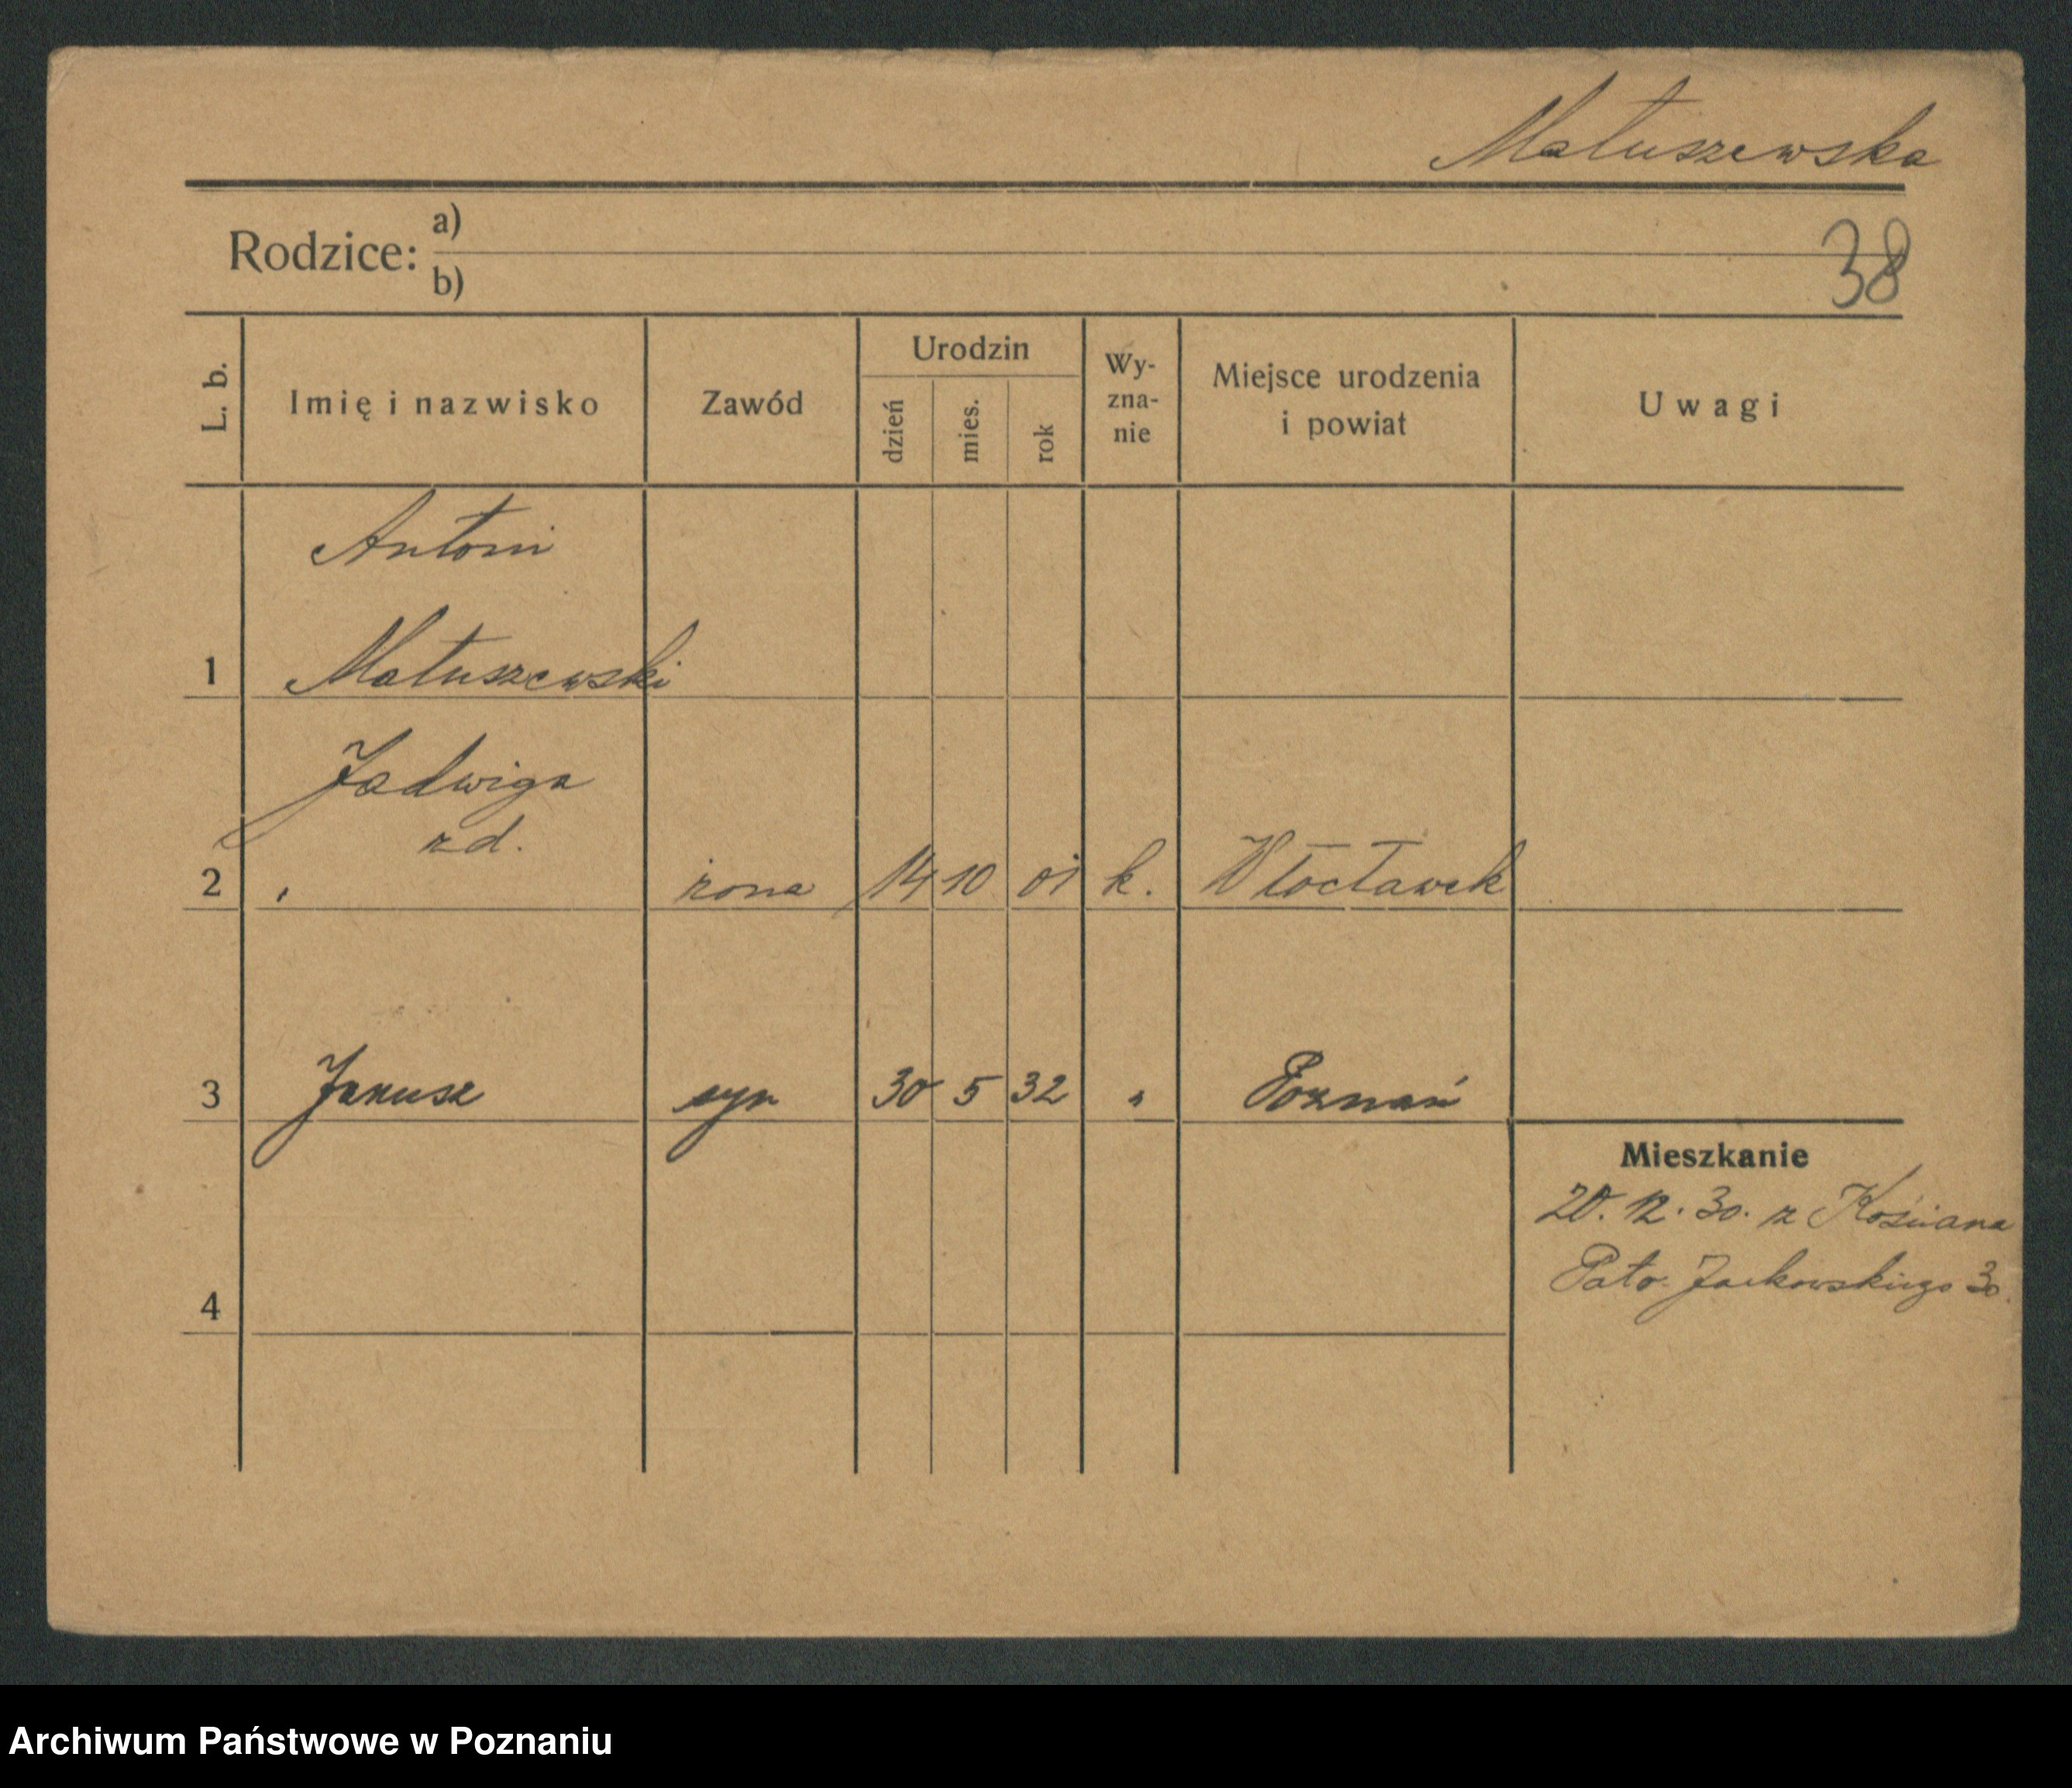 Matuszewska
Rodzice: a)
b)
38
L. b. Imię i nazwisko Zawód Urodzin dzień mies. rok Wy-zna-nie Miejsce urodzenia i powiat Uwagi
Antoni
1 Matuszewski
Jadwiga
zd.
2 " żona 14 10 01 k. Włocławek
3 Janusz syn 30 5 32 " Poznań
Mieszkanie
20. 12. 30. z Kościana
Patr. Jackowskiego 30.
4
Archiwum Państwowe w Poznaniu